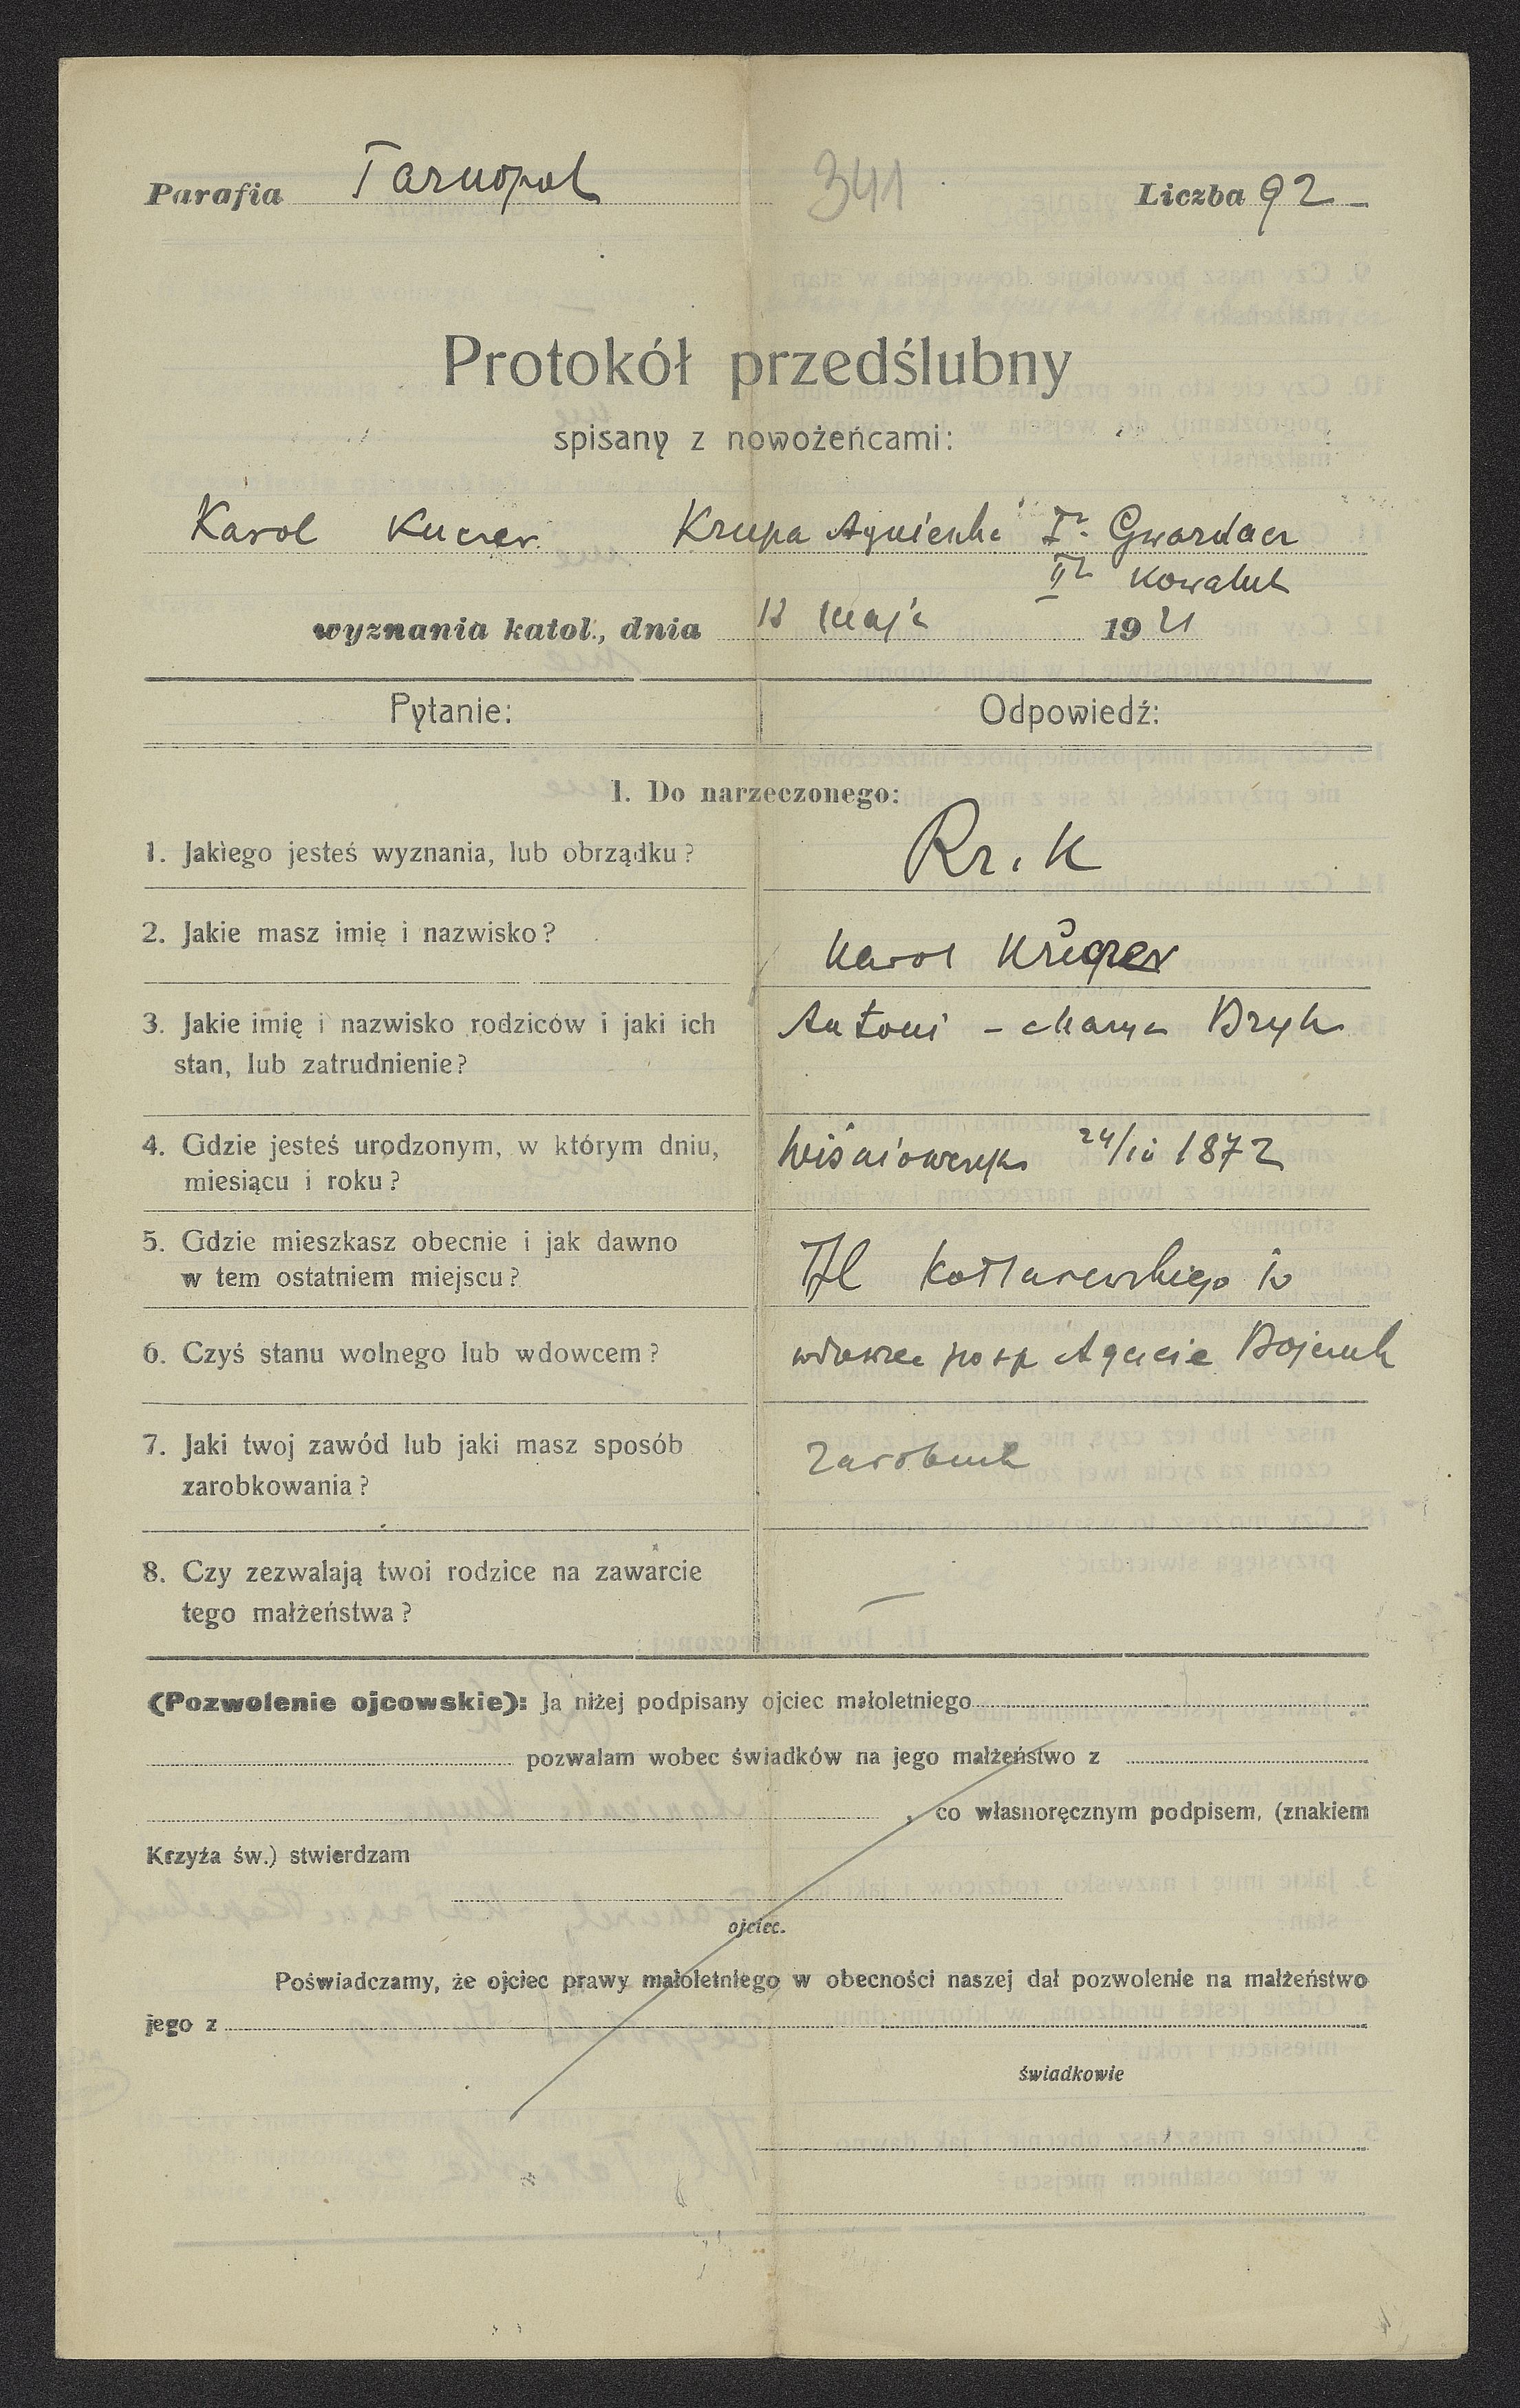 Parafia Tarnopol 341 Liczba 92
Protokół przedślubny
spisany z nowożeńcami:
Karol Kuczer Krupa Agnieszka Iº Gwardacz
IIº Kowaluk
wyznania katol., dnia 13 maja 1921
Pytanie: Odpowiedź:
1. Do narzeczonego:
1. Jakiego jesteś wyznania, lub obrządku? Rz. K
2. Jakie masz imię i nazwisko? Karol
3. Jakie imię i nazwisko rodziców i jaki ich Antoni – Marya
stan, lub zatrudnienie?
4. Gdzie jesteś urodzonym, w którym dniu, Wiśniowczyk 1872
miesiącu i roku?
5. Gdzie mieszkasz obecnie i jak dawno Kotlarewskiego
w tem ostatniem miejscu?
6. Czyś stanu wolnego lub wdowcem? wdowiec posp Agacie
7. Jaki twoj zawód lub jaki masz sposób zarobnik
zarobkowania?
8. Czy zezwalają twoi rodzice na zawarcie —
tego małżeństwa?
(Pozwolenie ojcowskie): Ja niżej podpisany ojciec małoletniego
pozwalam wobec świadków na jego małżeństwo z
, co własnoręcznym podpisem, (znakiem
Krzyża św.) stwierdzam
ojciec.
Poświadczamy, że ojciec prawy małoletniego w obecności naszej dał pozwolenie na małżeństwo
jego z
świadkowie